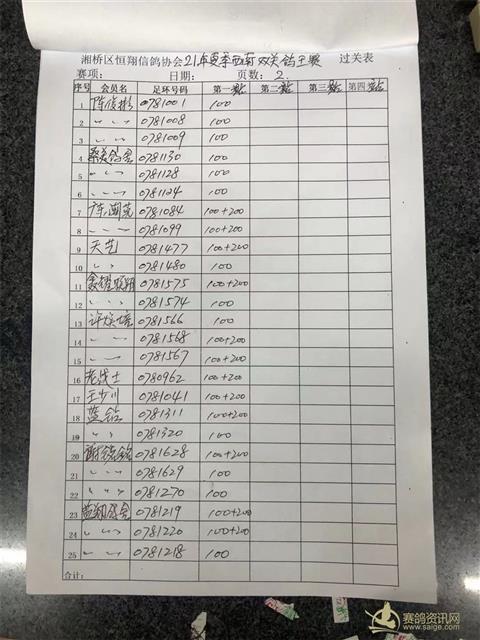 湘桥区恒翔信鸽协会21年夏季西南双关鸽王赛 过关表
赛项: 日期: 页数: 2
序号 会员名 足环号码 第一关 第二关 第三关 第四关
1 陈俊彬 0781001 100
2 〃 〃 0781008 100
3 〃 〃 0781009 100
4 0781130 100
5 〃 〃 0781128 100
6 〃 〃 0781124 100
7 0781084 100+200
8 〃 〃 0781099 100+200
9 天艺 0781477 100+200
10 〃 〃 0781480 100
11 0781575 100+200
12 〃 〃 0781574 100
13 0781566 100
14 〃 〃 0781568 100+200
15 〃 〃 0781567 100+200
16 老战士 0780962 100+200
17 王少川 0781041 100+200
18 蓝钻 0781311 100+200
19 〃 〃 0781320 100
20 0781628 100+200
21 〃 〃 0781629 100
22 〃 〃 0781270 100
23 0781219 100+200
24 〃 〃 0781220 100+200
25 〃 〃 0781218 100
合计:
赛鸽资讯网
www.saige.com